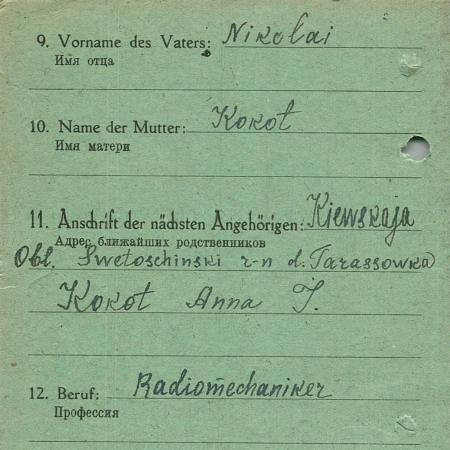 9. Vorname des Vaters: Nikolai
Имя отца
10. Name der Mutter: Kokot
Имя матери
11. Anschrift der nächsten Angehörigen: Kiewskaja
Адрес ближайших родственников
Obl. Swetoschinski r-n d. Tarassowka
Kokot Anna J.
12. Beruf: Radiomechaniker
Профессия